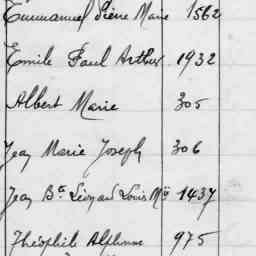 Emmanuel Pierre Marie 1562
Emile Paul Arthur 1932
Albert Marie 305
Jean Marie Joseph 306
Jean Bte Léonard Louis Mie 1437
Théophile Alphonse 975